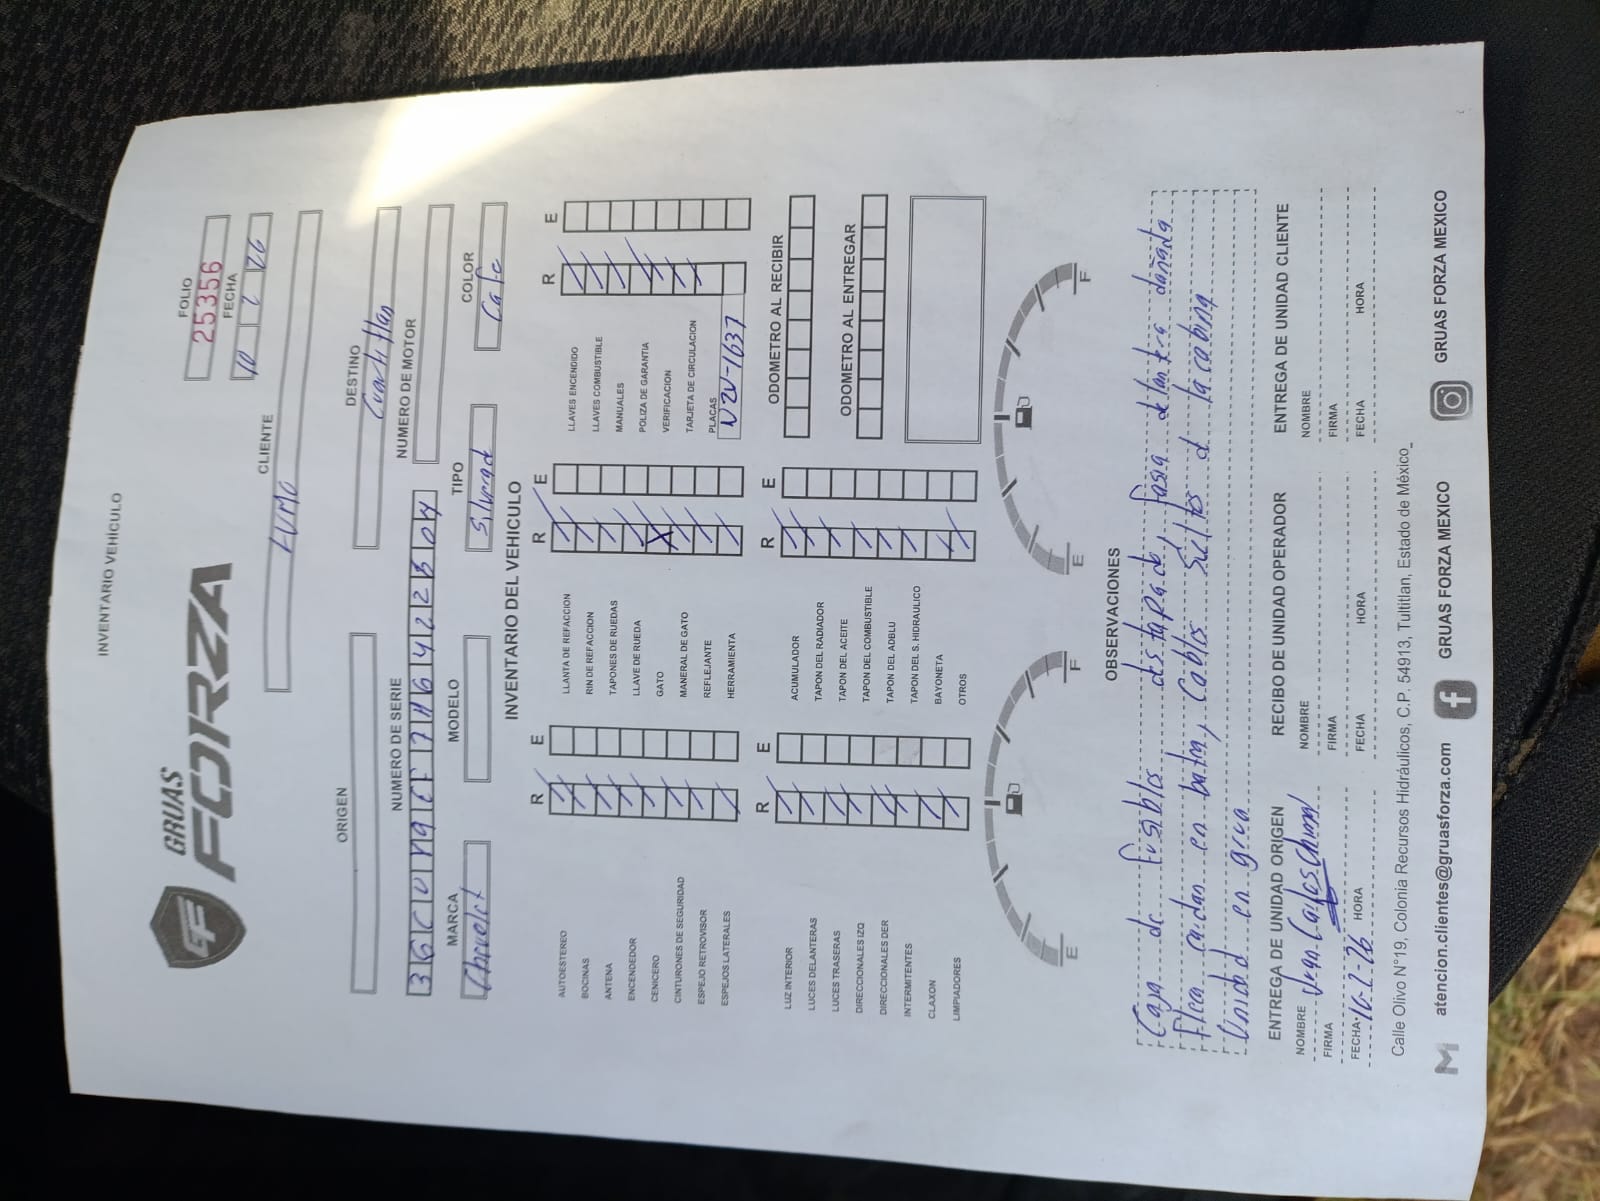 INVENTARIO VEHÍCULO
GRUAS
FORZA
FOLIO
25356
FECHA
10 2 26
CLIENTE
ORIGEN
DESTINO
Cuautitlan
NUMERO DE SERIE
NUMERO DE MOTOR
3GCUY9EF7
MARCA
MODELO
TIPO
COLOR
Chevrolet
Silverad
Cafe
INVENTARIO DEL VEHICULO
R E
AUTOESTEREO
BOCINAS
ANTENA
ENCENDEDOR
CENICERO
CINTURONES DE SEGURIDAD
ESPEJO RETROVISOR
ESPEJOS LATERALES
R E
LLANTA DE REFACCION
RIN DE REFACCION
TAPONES DE RUEDAS
LLAVE DE RUEDA
GATO
MANERAL DE GATO
REFLEJANTE
HERRAMIENTA
R E
LLAVES ENCENDIDO
LLAVES COMBUSTIBLE
MANUALES
POLIZA DE GARANTIA
VERIFICACION
TARJETA DE CIRCULACION
PLACAS
R E
LUZ INTERIOR
LUCES DELANTERAS
LUCES TRASERAS
DIRECCIONALES IZQ
DIRECCIONALES DER
INTERMITENTES
CLAXON
LIMPIADORES
R E
ACUMULADOR
TAPON DEL RADIADOR
TAPON DEL ACEITE
TAPON DEL COMBUSTIBLE
TAPON DEL ADBLU
TAPON DEL S. HIDRAULICO
BAYONETA
OTROS
ODOMETRO AL RECIBIR
ODOMETRO AL ENTREGAR
E F
E F
OBSERVACIONES
Caja de fusibles destapada, fasia delantera dañada
caidan en batea, Cables Sueltos d la cabina
Unidad en grua
ENTREGA DE UNIDAD ORIGEN
NOMBRE Juan Carlos
FIRMA
FECHA 10-2-26 HORA
RECIBO DE UNIDAD OPERADOR
NOMBRE
FIRMA
FECHA HORA
ENTREGA DE UNIDAD CLIENTE
NOMBRE
FIRMA
FECHA HORA
Calle Olivo N°19, Colonia Recursos Hidráulicos, C.P. 54913, Tultitlan, Estado de México_
atencion.clientes@gruasforza.com
GRUAS FORZA MEXICO
GRUAS FORZA MEXICO